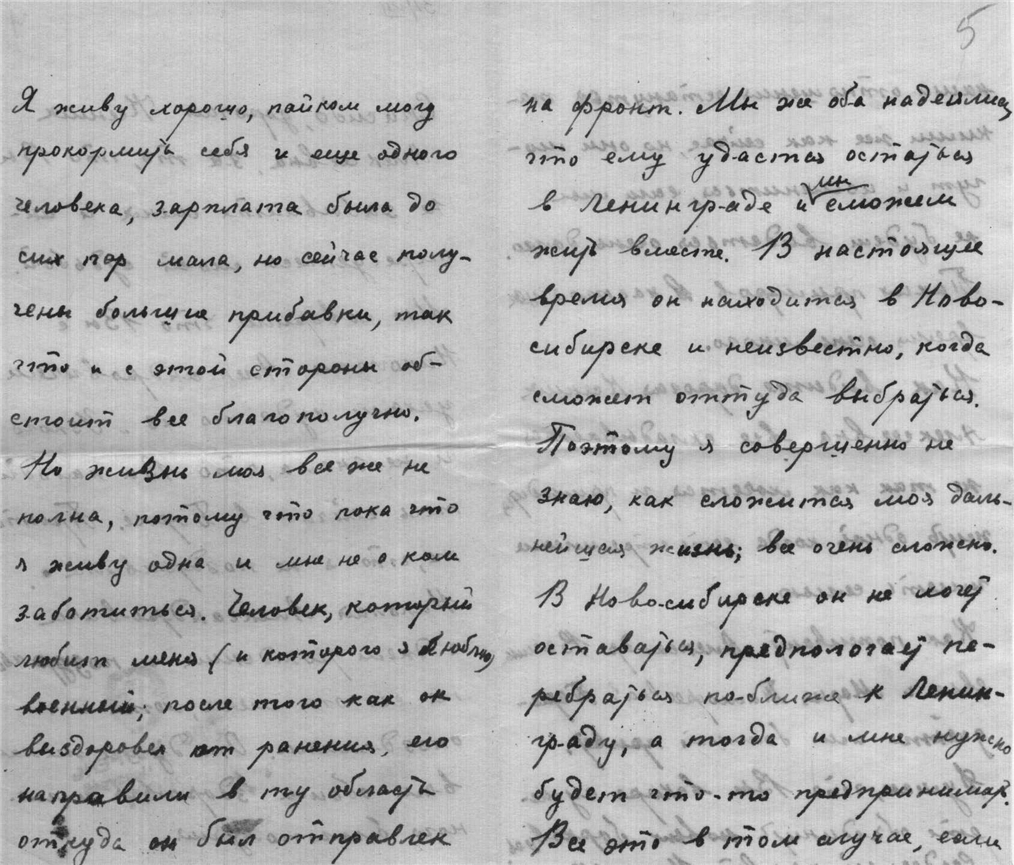 Я живу хорошо, пайком могу
прокормить себя и еще одного
человека, зарплата была до
сих пор мала, но сейчас полу-
чены большие прибавки, так
что и с этой стороны об-
стоит все благополучно.
Но жизнь моя все же не
полна, потому что пока что
я живу одна и мне не о ком
заботиться. Человек, который
любит меня (и которого я люблю)
военный; после того как он
выздоровел от ранения, его
направили в ту область
откуда он был отправлен
5
на фронт. Мы же оба надеялись,
что ему удастся остаться
в Ленинграде и мы сможем
жить вместе. В настоящее
время он находится в Ново-
сибирске и неизвестно, когда
сможет оттуда выбраться.
Поэтому я совершенно не
знаю, как сложится моя даль-
нейшая жизнь; все очень сложно.
В Новосибирске он не хочет
оставаться, предпологает пе-
ребраться по-ближе к Ленин-
граду, а тогда и мне нужно
будет что-то предпринимать.
Все это в том случае, если